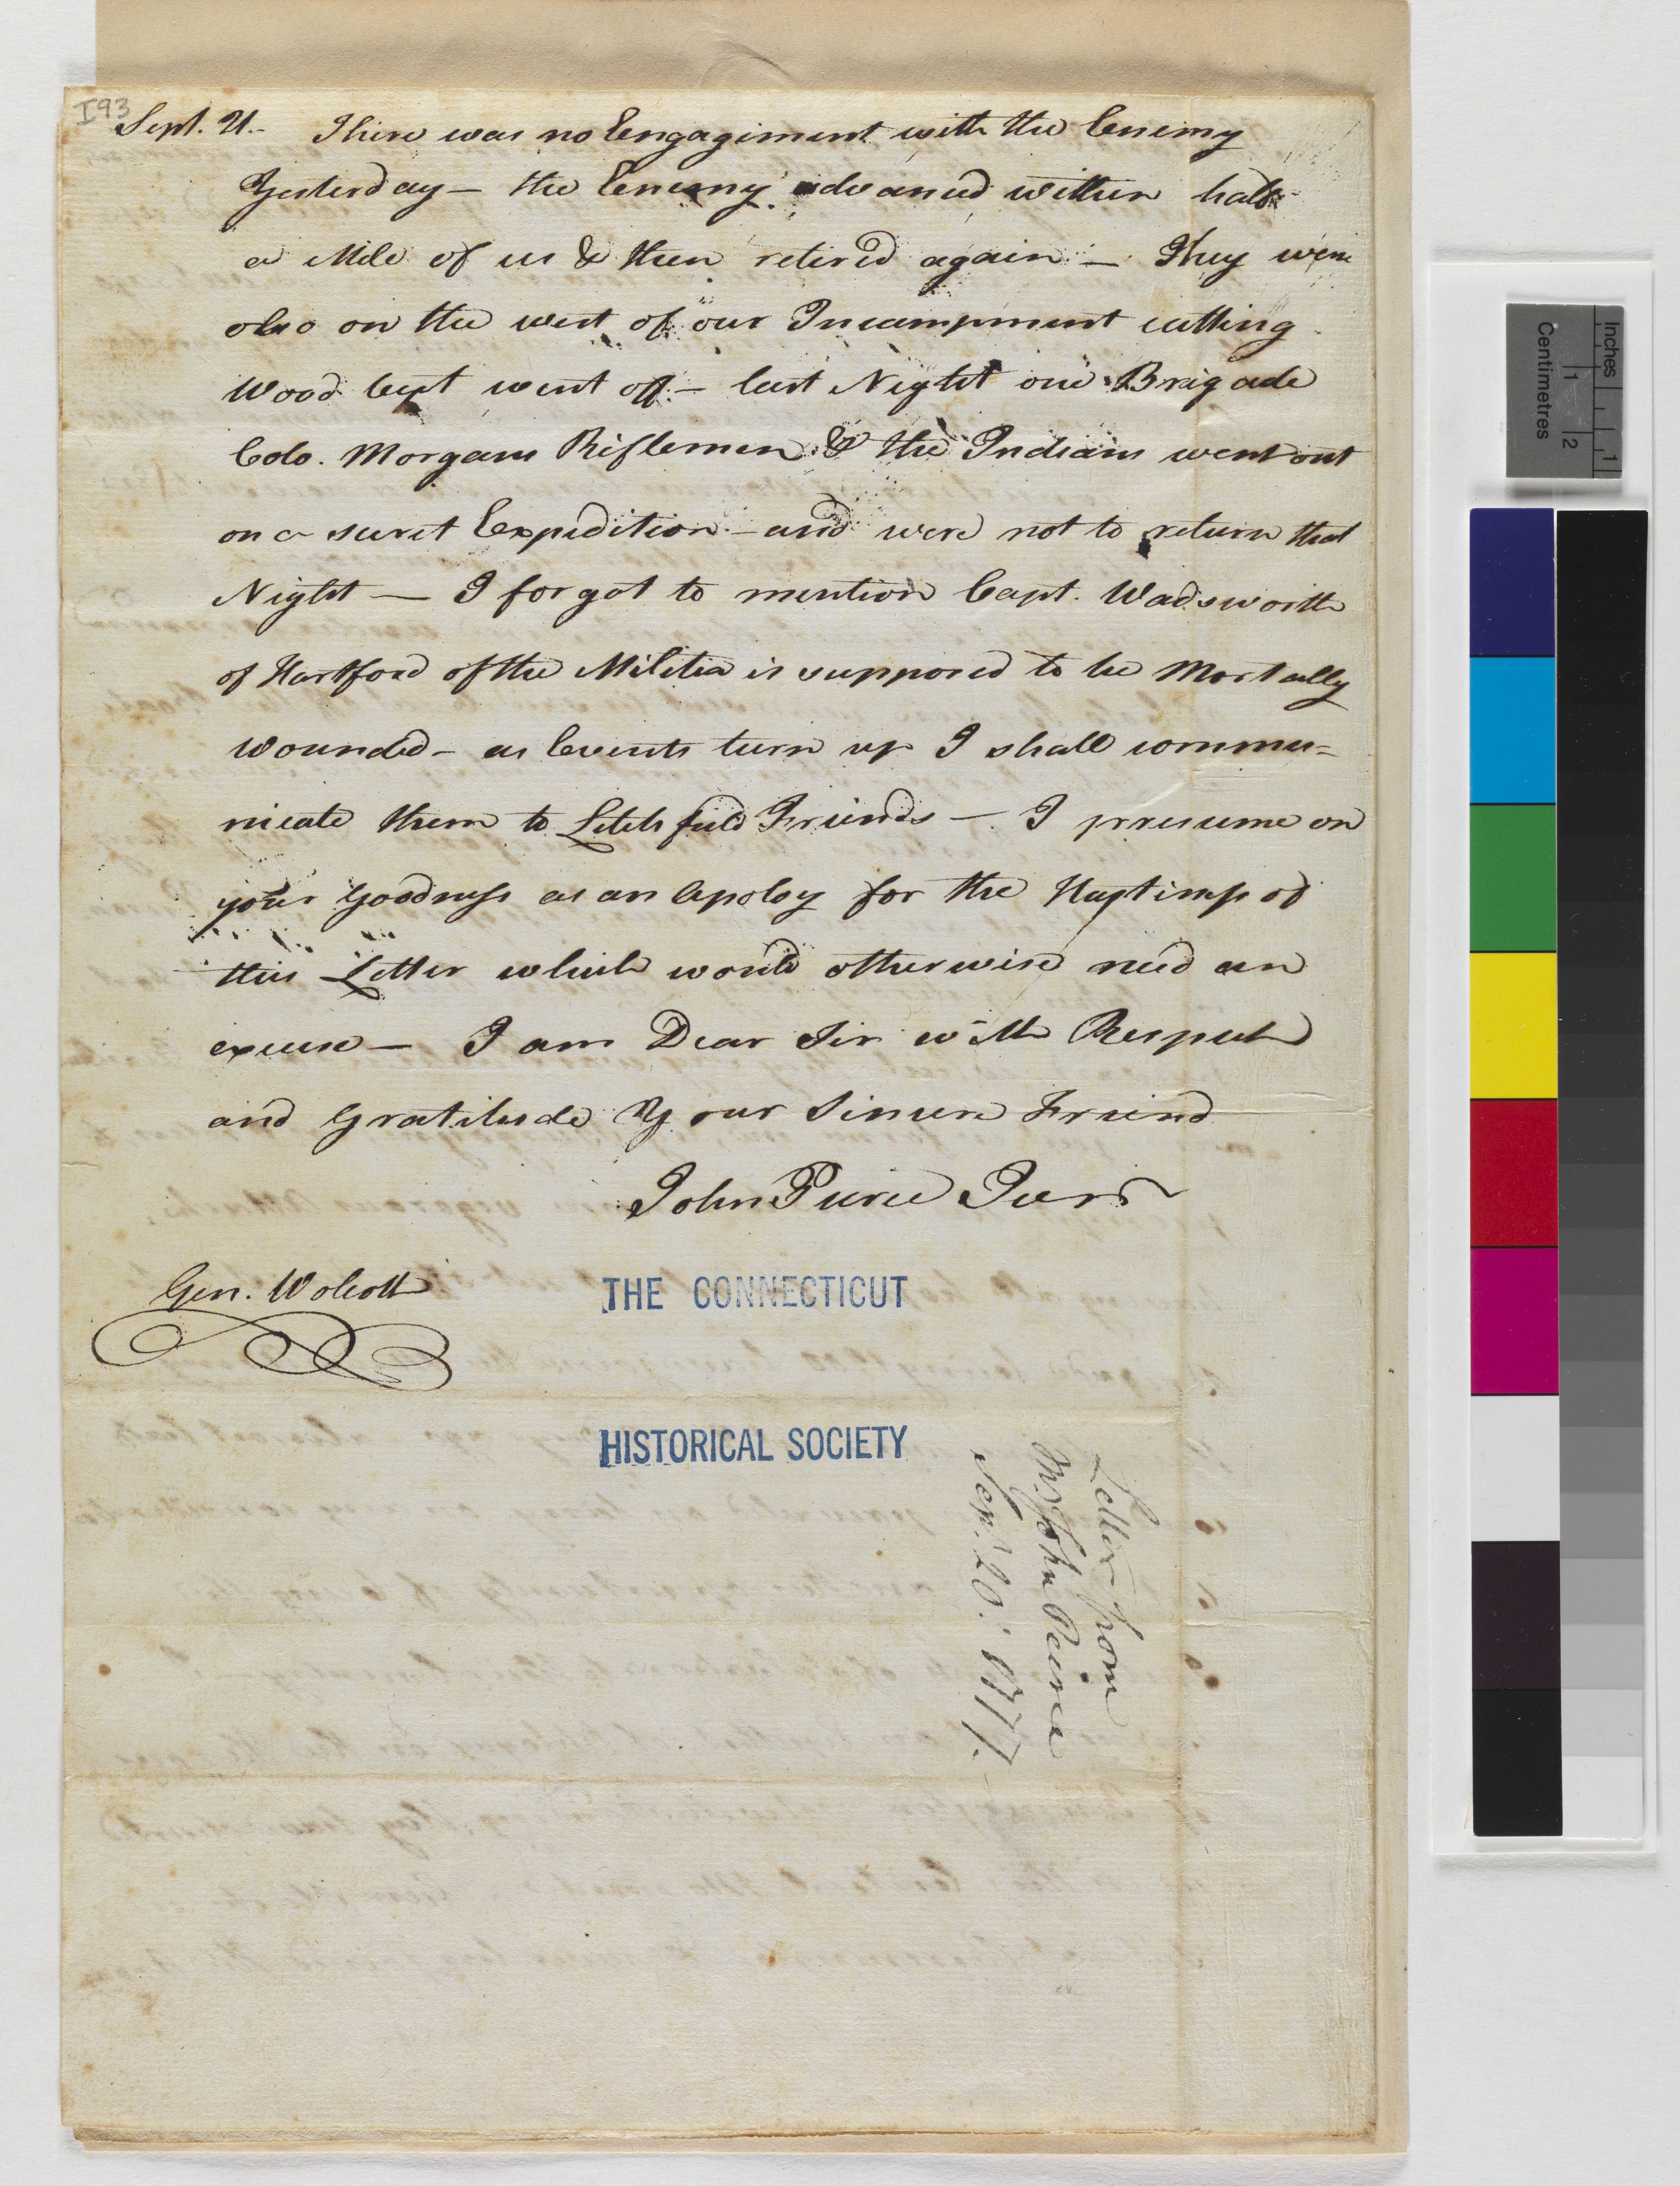 I93
Sept. 21.- There was no Engagement with the Enemy
Yesterday — the Enemy advanced within half
a Mile of us & then retired again — They were
also on the west of our Incampment cutting
Wood but went off — last Night one Brigade
Colo. Morgans Riflemen & the Indians went out
on a secret Expedition — and were not to return that
Night — I forgot to mention Capt. Wadsworth
of Hartford of the Militia is supposed to be Mortally
wounded — as Events turn up I shall commu=
nicate them to Litchfield Friends — I presume on
your goodness as an apoloy for the Hastiness of
this Letter which would otherwise need an
excuse — I am Dear Sir with Respect
and gratitude Your Sincere Friend
John Pierce Junr
Gen. Wolcott
THE CONNECTICUT
HISTORICAL SOCIETY
Letter from
Mr John Peirce
Sep. 20. 1777.
Inches
1
Centimetres
1 2